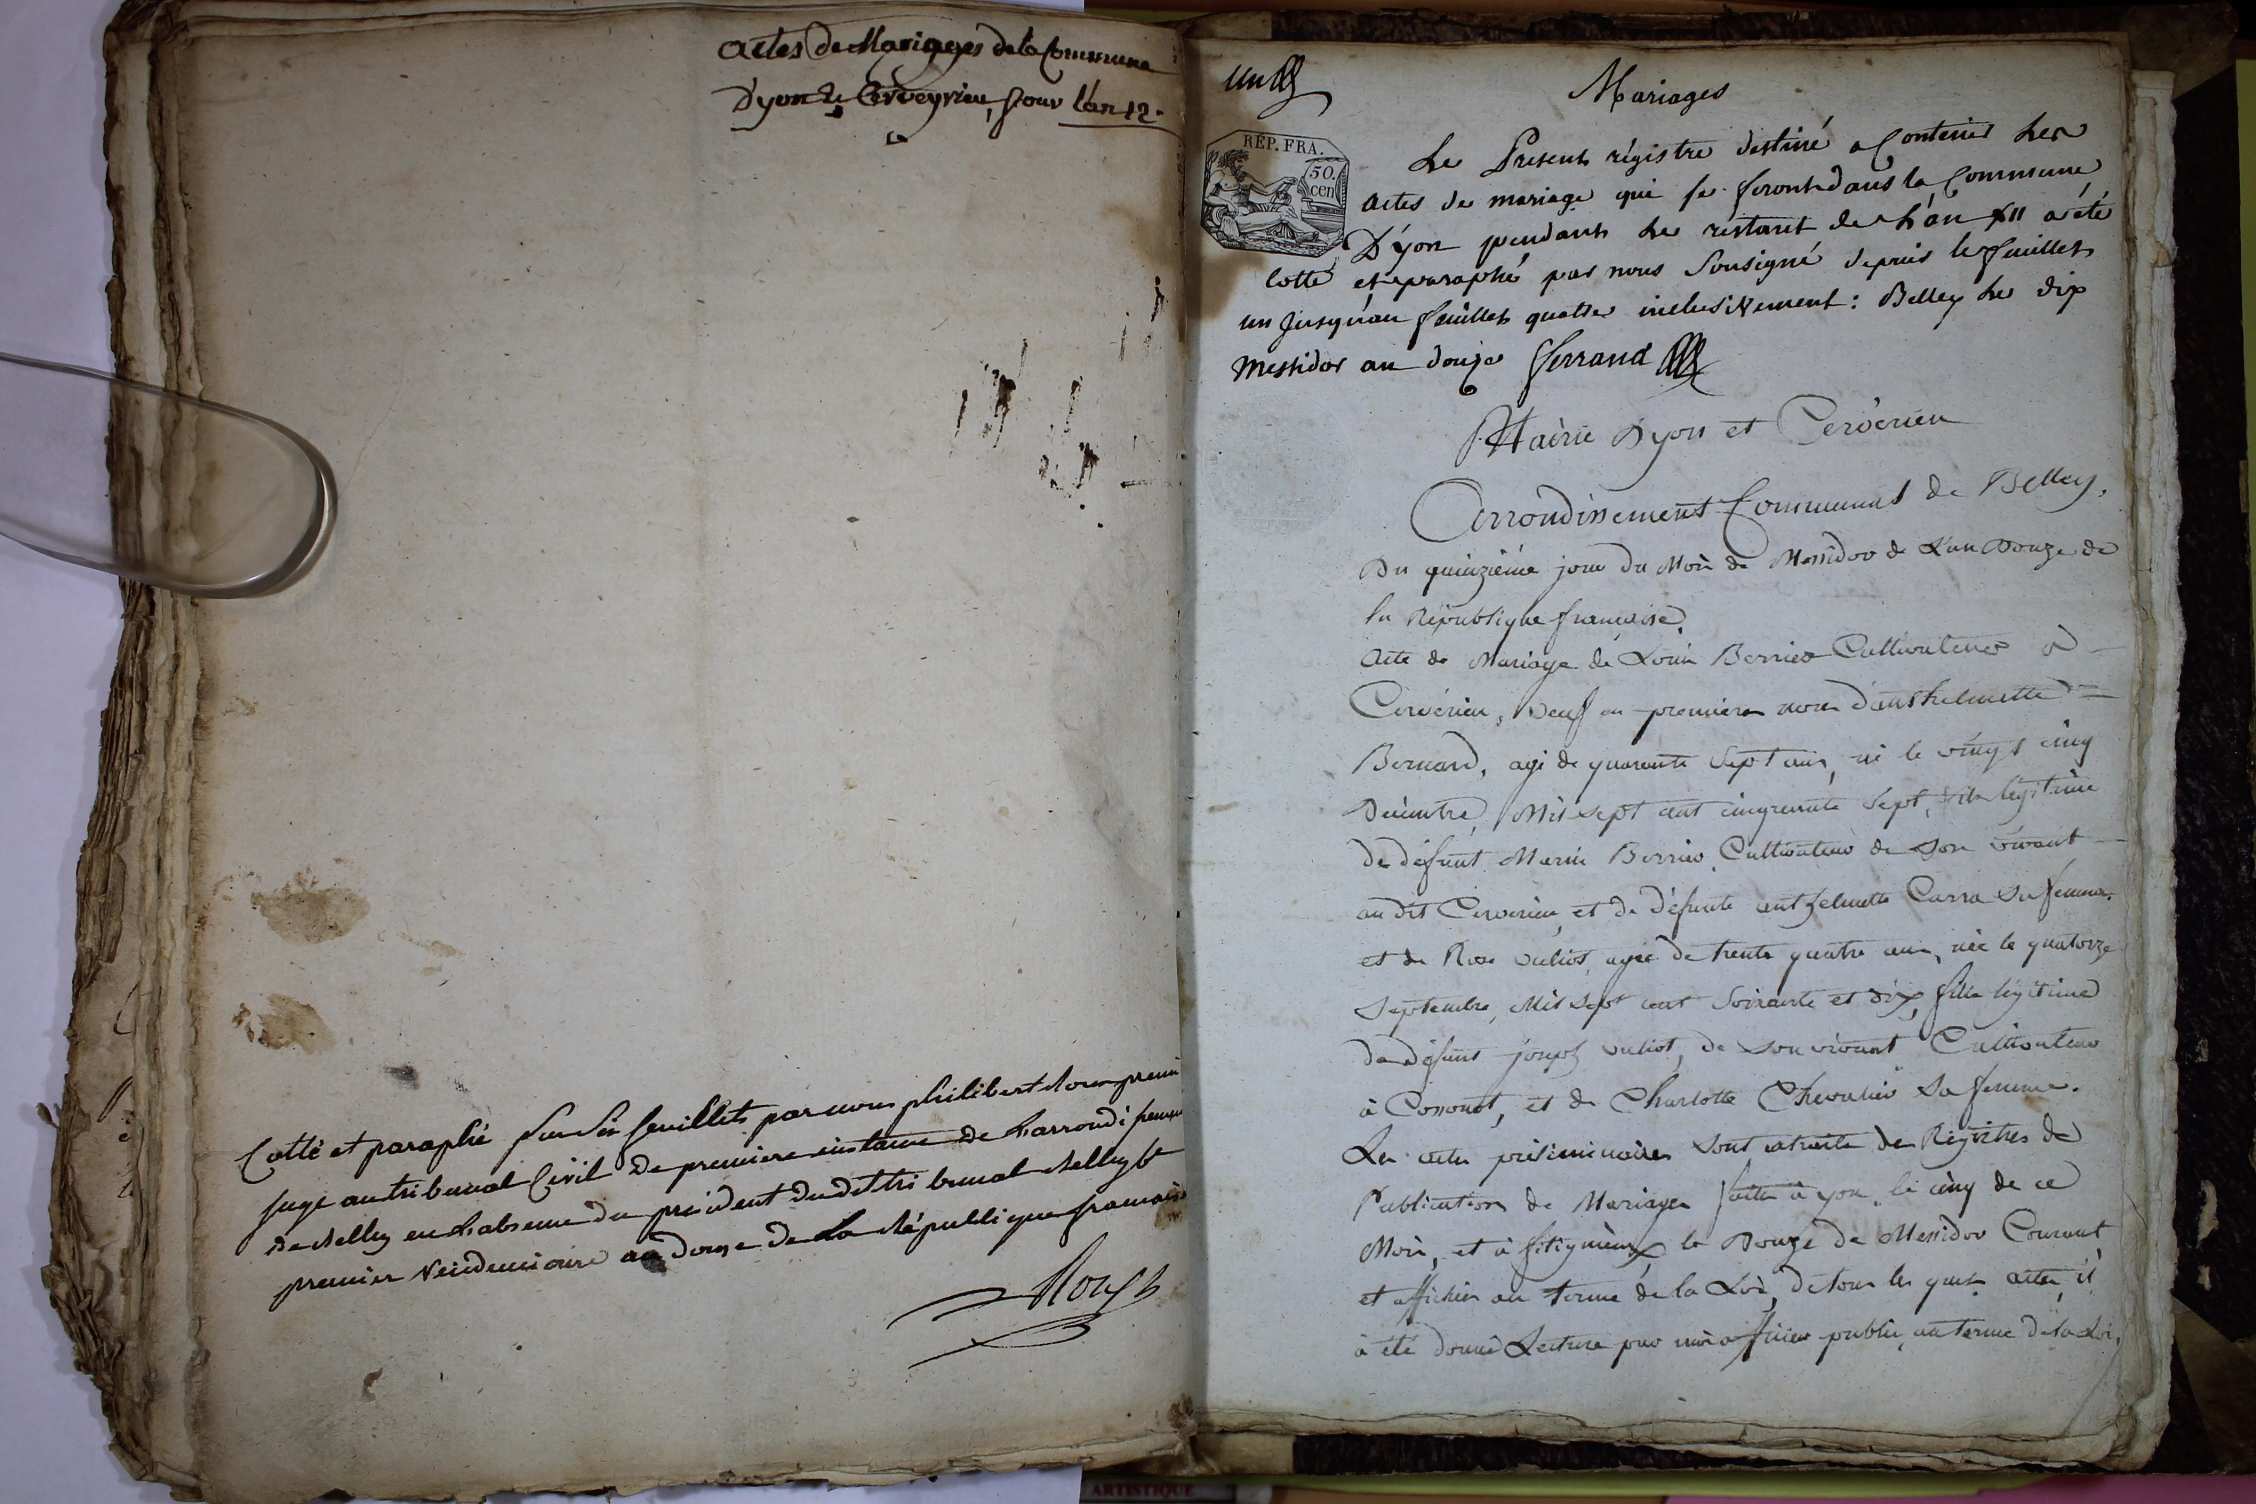 actes de Mariages de la Commune
D'yon & Cerveyrieu, pour l'an 12.
Cotté et paraphé sur six feuillets par nous philibert Roux premier
juge au tribunal Civil de premiere instance de L'arrondissement
de Belley en L'absence du president du dit tribunal Belley le
premier vendemiaire an douze de La République francaise
Roux
un
Mariages
REP. FRA.
50.
cen
Le Present régistre destiné a Contenir Les
actes de mariage qui se feront dans la Commune
D'yon pendant Le restant de L'an XII a été
cotté et paraphé par nous Sousigné depuis le feuillet
un jusqu'au feuillet quatre inclusivement : Belley Le dix
Messidor an douze Ferrand
Mairie Dyon et Cervérieu
Arrondissement Communal de Belley,
Du quinzième jour du Mois de Messidor de L'an Douze de
la République française.
Acte de Mariage de Louis Berrier Cultivateur à
Cervérieu, veuf en premieres noces d'anthelmette
Bernard, agé de quarante Sept ans, né le vingt cinq
Décembre, Mil sept cent cinquante Sept, fils légitime
de défunt Marin Berrier Cultivateur de son vivant
au dit Cervérieu, et de défunte anthelmette Carra Sa femme.
et de Rose Juliot, agée de trente quatre ans, née le quatorze
Septembre, Mil Sept cent Soixante et dix, fille légitime
de défunt joseph Juliot, de son vivant Cultivateur
à Corsonot, et de Charlotte Chevalier Sa femme.
Les actes préliminaires Sont extraits des Régistres de
Publications de Mariages faites à yon, le cinq de ce
Mois, et à fitignieux le Douze de Messidor Courant
et affichés au terme de la Loi, de tous les quels actes, il
à été donné Lecture par moi officier public, au terme de la Loi,
ARTISTIQUE